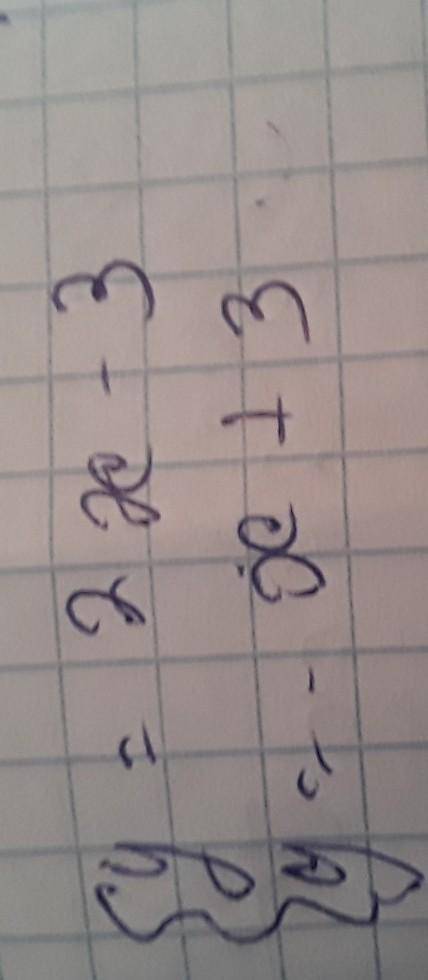 y = 2x - 3
y = - x + 3